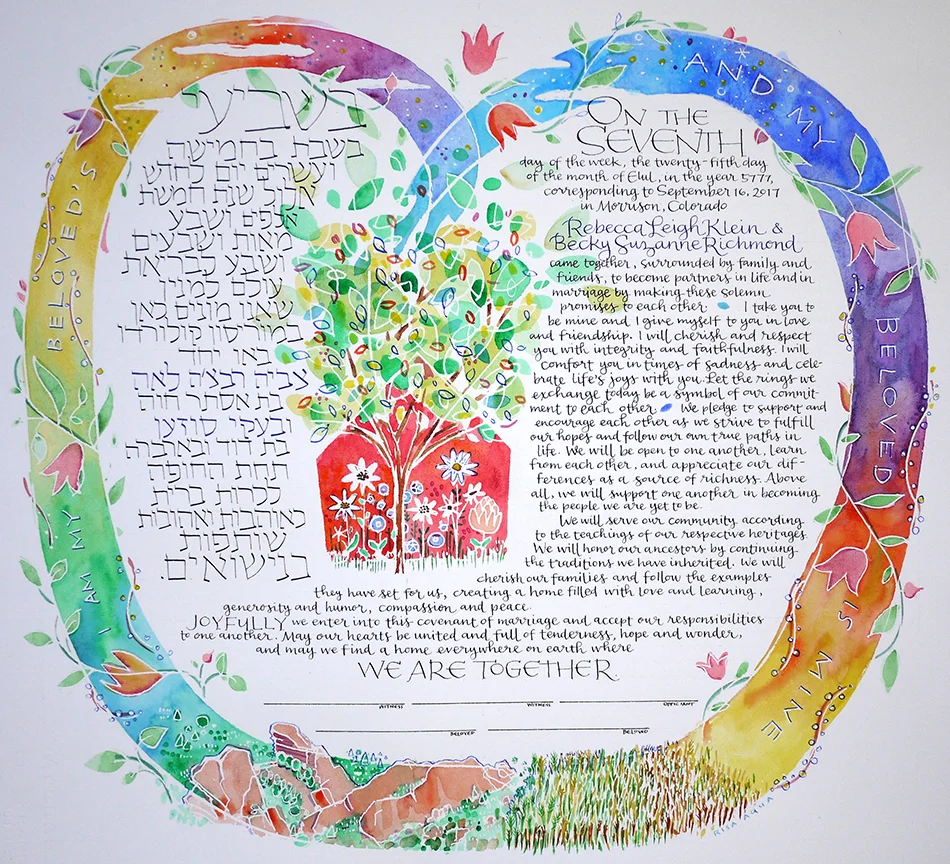 I AM MY BELOVED'S
AND MY BELOVED IS MINE
בשביעי
בשבת בחמישה
ועשרים יום לחודש
אלול שנת חמשת
אלפים ושבע
מאות ושבעים
ושבע לבריאת
עולם למנין
שאנו מונים כאן
במוריסון קולורדו
באו יחד
לאה
בת אסתי חוה
סוזען
בת דוד
תחת החופה
לכרות ברית
כאוהבות ואהובות
שותפות
בנישואים.
ON THE
SEVENTH
day of the week, the twenty-fifth day
of the month of Elul, in the year 5777,
corresponding to September 16, 2017
in Morrison, Colorado
Rebecca Leigh Klein &
Becky Suzanne Richmond
came together, surrounded by family and
friends, to become partners in life and in
marriage by making these solemn
promises to each other I take you to
be mine and I give myself to you in love
and friendship. I will cherish and respect
you with integrity and faithfulness. I will
comfort you in times of sadness and cele-
brate life's joys with you. Let the rings we
exchange today be a symbol of our commit-
ment to each other We pledge to support and
encourage each other as we strive to fulfill
our hopes and follow our own true paths in
life. We will be open to one another, learn
from each other, and appreciate our dif-
ferences as a source of richness. Above
all, we will support one another in becoming
the people we are yet to be.
We will serve our community according
to the teachings of our respective heritages.
We will honor our ancestors by continuing
the traditions we have inherited. We will
cherish our families and follow the examples
they have set for us, creating a home filled with love and learning,
generosity and humor, compassion and peace.
JOYFULLY we enter into this covenant of marriage and accept our responsibilities
to one another. May our hearts be united and full of tenderness, hope and wonder,
and may we find a home everywhere on earth where
WE ARE TOGETHER.
WITNESS WITNESS OFFICIANT
BELOVED BELOVED
RISA AQUA